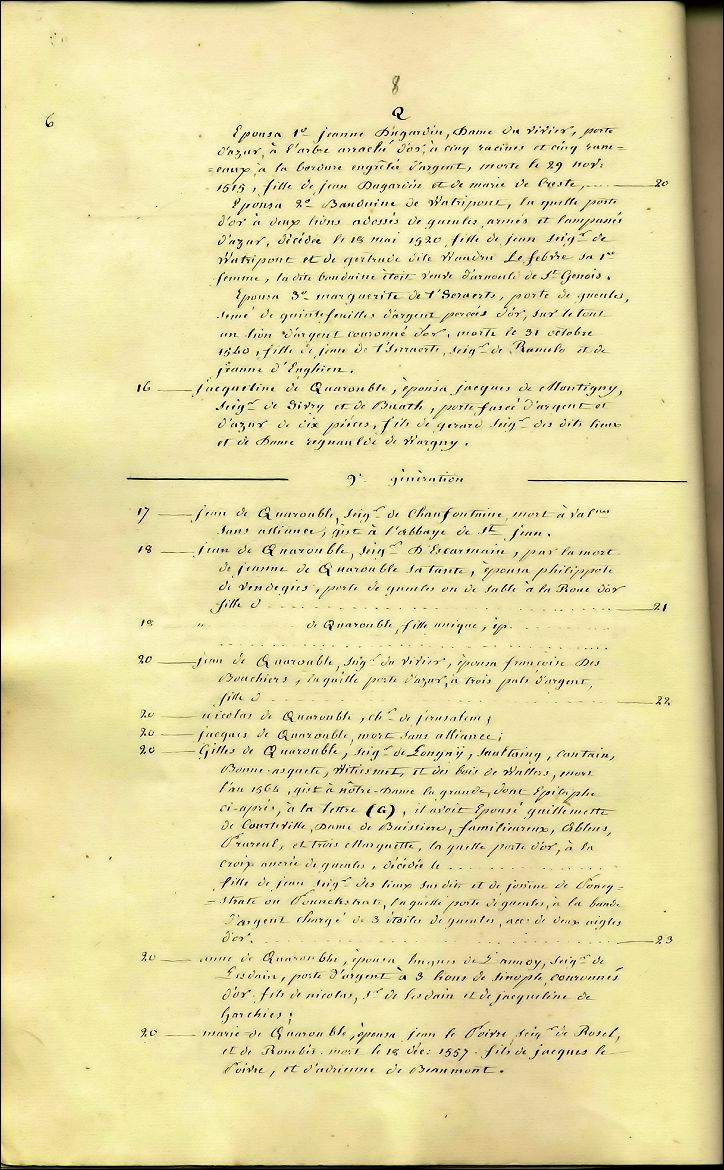 8
Q
6
Epousa 1º jeanne Dugardin, Dame du vivier, porte
d'azur, à l'arbre arraché d'or, à cinq racines et cinq ram=
=eaux, à la bordure engrêlée d'argent, morte le 29 nov:
1515, fille de jean Dugardin et de marie de Creste, ...... 20
Epousa 2º Bauduine de Watripont, la quelle porte
d'or à deux lions adossés de gueules armés et lampassés
d'azur, décédée le 18 mai 1520 fille de jean seigr de
Watripont et de gertrude dite Waudru Le febvre sa 1re
femme, la dite bauduine étoit veuve d'arnould de St Genois.
Epousa 3º marguerite de t'Seraerts, porte de gueules,
semé de quintefeuilles d'argent percées d'or, sur le tout
un lion d'argent couronné d'or, morte le 31 octobre
1540, fille de jean de t'Serraerts, seigr de Ramelo et de
jeanne d'Enghien.
16 jacqueline de Quarouble, épousa jacques de Montigny,
seigr de Givry et de Buath, porte fascé d'argent et
d'azur de dix pièces, fils de gerard seigr des dits lieux
et de Dame regnaulde de Wargny.
9e génération
17 jean de Quarouble, seigr de Chaufontaine, mort à Valnes
sans alliance, gist à l'abbaye de St jean.
18 jean de Quarouble, seigr D'Escarmain, par la mort
de jeanne de Quarouble sa tante, épousa philippote
de Vendegies, porte de gueules ou de sable à la Roue d'or
fille d ...... 21
18 " de Quarouble, fille unique, ép. ......
20 jean de Quarouble, seigr du vivier, épousa françoise Des
Bouchiers, laquelle porte d'azur, à trois pals d'argent,
fille d ...... 22
20 nicolas de Quarouble, chr de jerusalem;
20 jacques de Quarouble, mort sans alliance;
20 Gilles de Quarouble, seigr de Longny, Saultaing, Cantain,
Bonne-asquete, Witiesmet, et des bois de Wallers, mort
l'an 1564, gist à nôtre-Dame la grande, dont Epitaphe
ci-après, à la lettre (G), il avoit Epousé guillemette
de Courteville, Dame de Buissine, familieureux, Ablens,
Prareul, et trois Marquette, la quelle porte d'or, à la
croix ancrée de gueules, décédée le ......
fille de jean seigr des lieux sus dits et de josine de Poncq=
=strate ou Pounckstrate, laquelle porte de gueules, à la bande
d'argent chargé de 3 étoiles de gueules, acc: de deux aigles
d'or. ...... 23
20 anne de Quarouble, épousa hugues de Lannoy, seigr de
Lesdain, porte d'argent à 3 lions de sinople, couronnés
d'or, fils de nicolas, Sr de lesdain et de jacqueline de
harchies;
20 marie de Quarouble, épousa jean le Poivre seigr de Rosel,
et de Rombis. mort le 18 déc: 1557. fils de jacques le
Poivre, et d'adrienne de Beaumont.